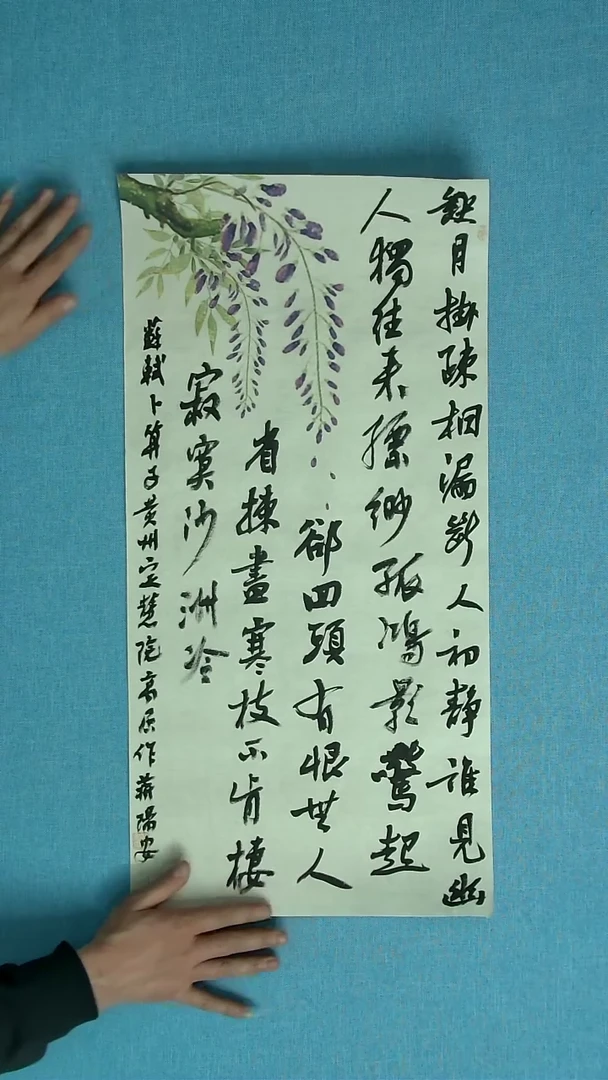 缺月掛疎桐漏斷人初静誰見幽
人獨往来縹緲孤鴻影驚起
卻回頭有恨無人
省揀盡寒枝不肯棲
寂寞沙洲冷
蘇軾卜算子黄州定慧院寓居作蒋陽安